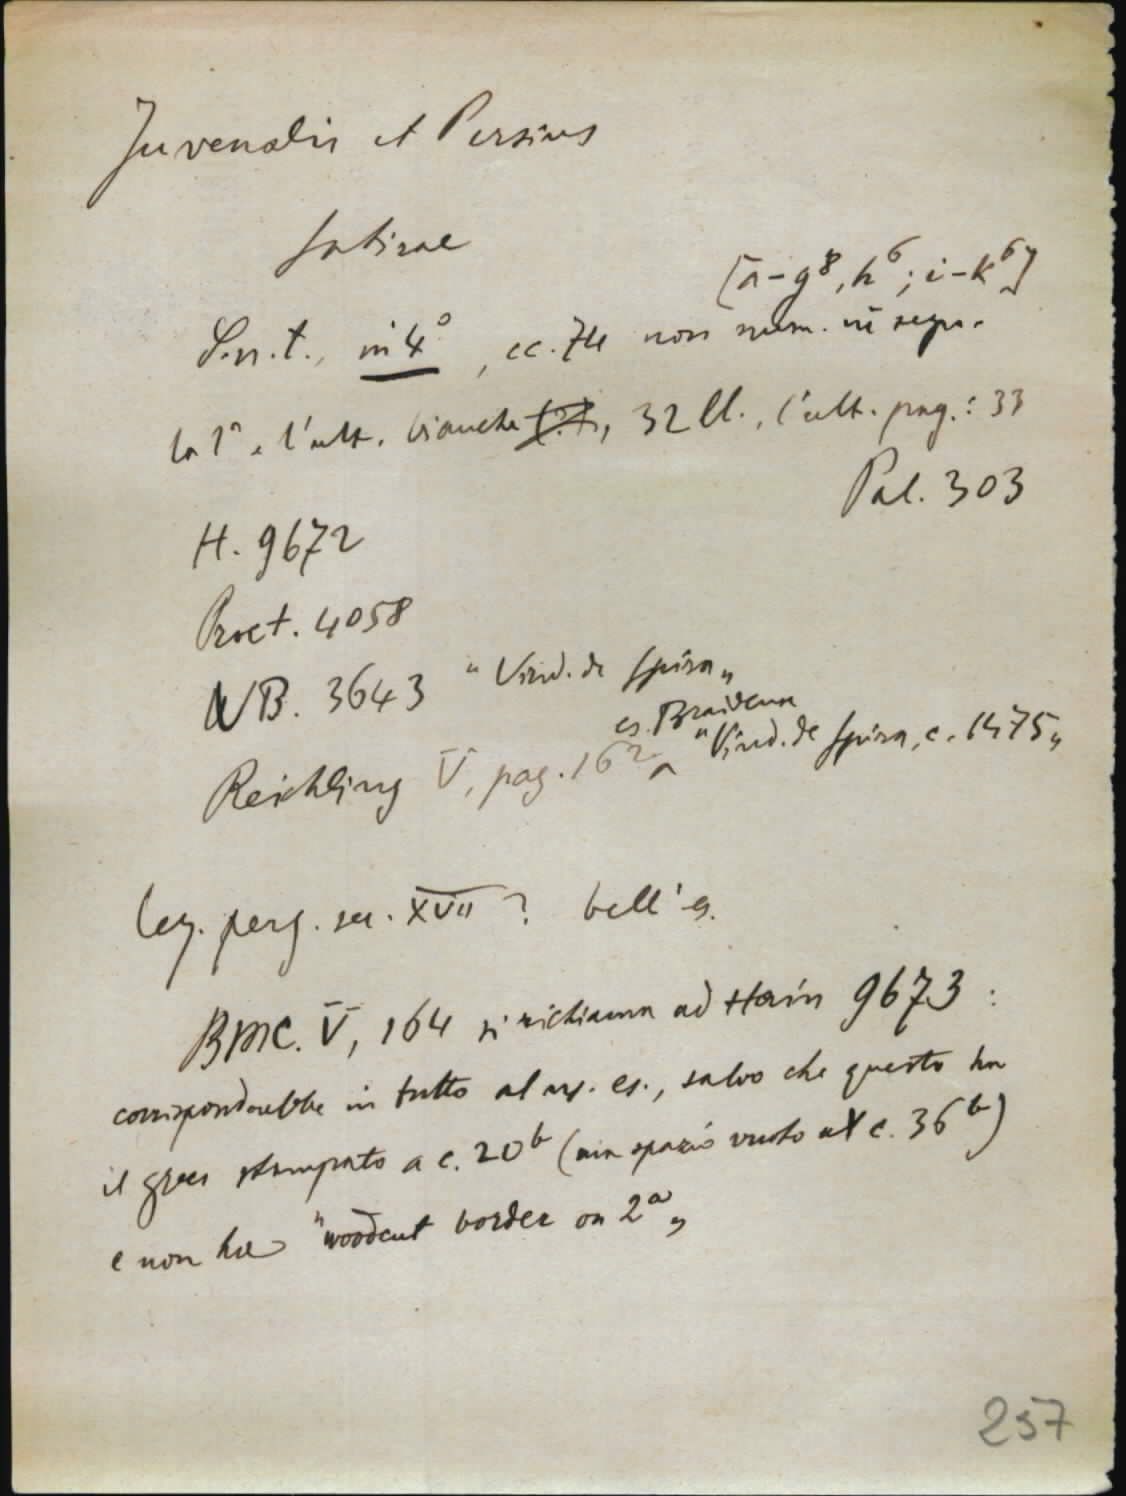 Juvenalis et Persius
Satirae
[a-g⁸, h⁶; i-k⁶]
S.n.t., in 4°, cc. 74 non num. nè segn.
la 1ª e l'ult. bianche, 32 ll., l'ult. pag.: 33
Pal. 303
H. 9672
Proct. 4058
VB. 3643 "Vind. de Spira„
es. Braidense
Reichling V, pag. 162 "Vind. de Spira, c. 1475„
leg. perg. sec. XVII? bell'es.
BMC. V, 164 si richiama ad Hain 9673:
corrisponderebbe in tutto al ns. es., salvo che questo ha
il greco stampato a c. 20ᵇ (ma spazio vuoto a c. 36ᵇ)
e non ha "woodcut border on 2ª„
257